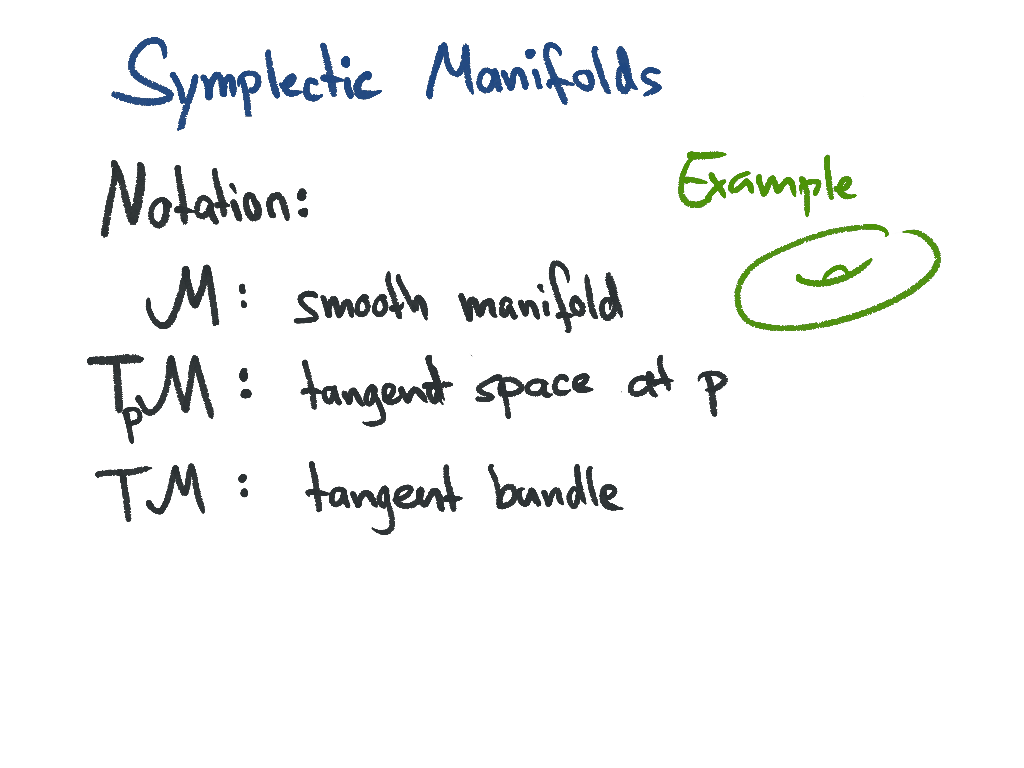 Symplectic Manifolds
Notation:
Example
M: smooth manifold
TpM: tangent space at p
TM: tangent bundle